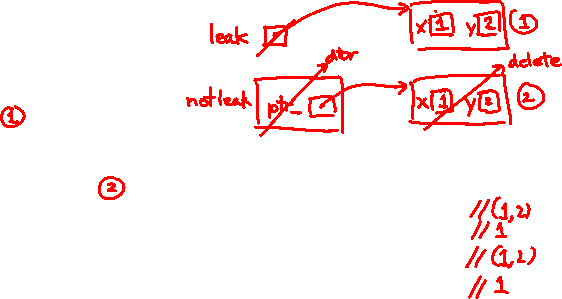 leak x 1 y 2 ①
dtr delete
notleak ptr_ x 1 y 2 ②
①
②
//(1,2)
//1
//(1,2)
//1